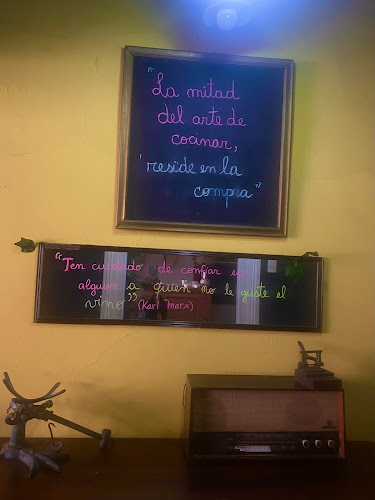 "La mitad
del arte de
cocinar,
reside en la
compra"
"Ten cuidado de confiar en
alguien a quien no le guste el
vino" (Karl Marx)